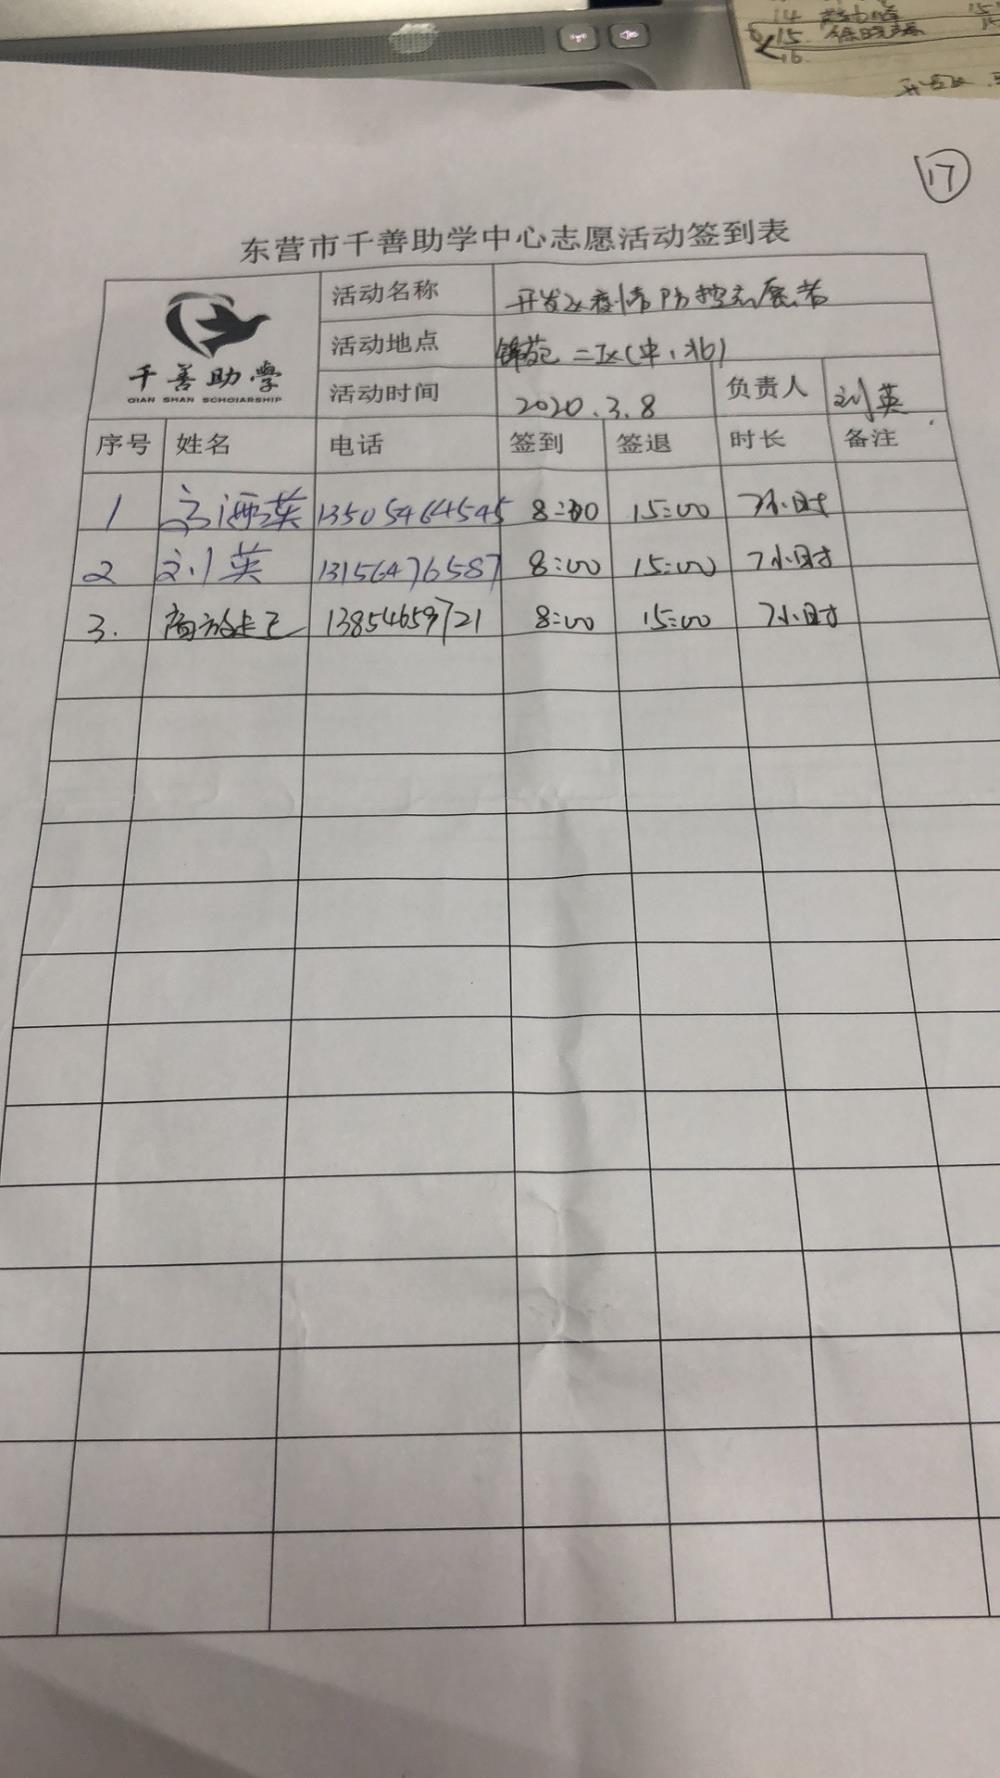 14
15
15.
16
17
东营市千善助学中心志愿活动签到表
千善助学
QIAN SHAN SCHOIARSHIP
活动名称 开发区疫情防控志愿者
活动地点 锦苑二区(中、北)
活动时间 2020.3.8 负责人 刘英
序号 姓名 电话 签到 签退 时长 备注
1 英 13505464545 8:00 15:00 7小时
2 刘英 13156476587 8:00 15:00 7小时
3. 13854659721 8:00 15:00 7小时